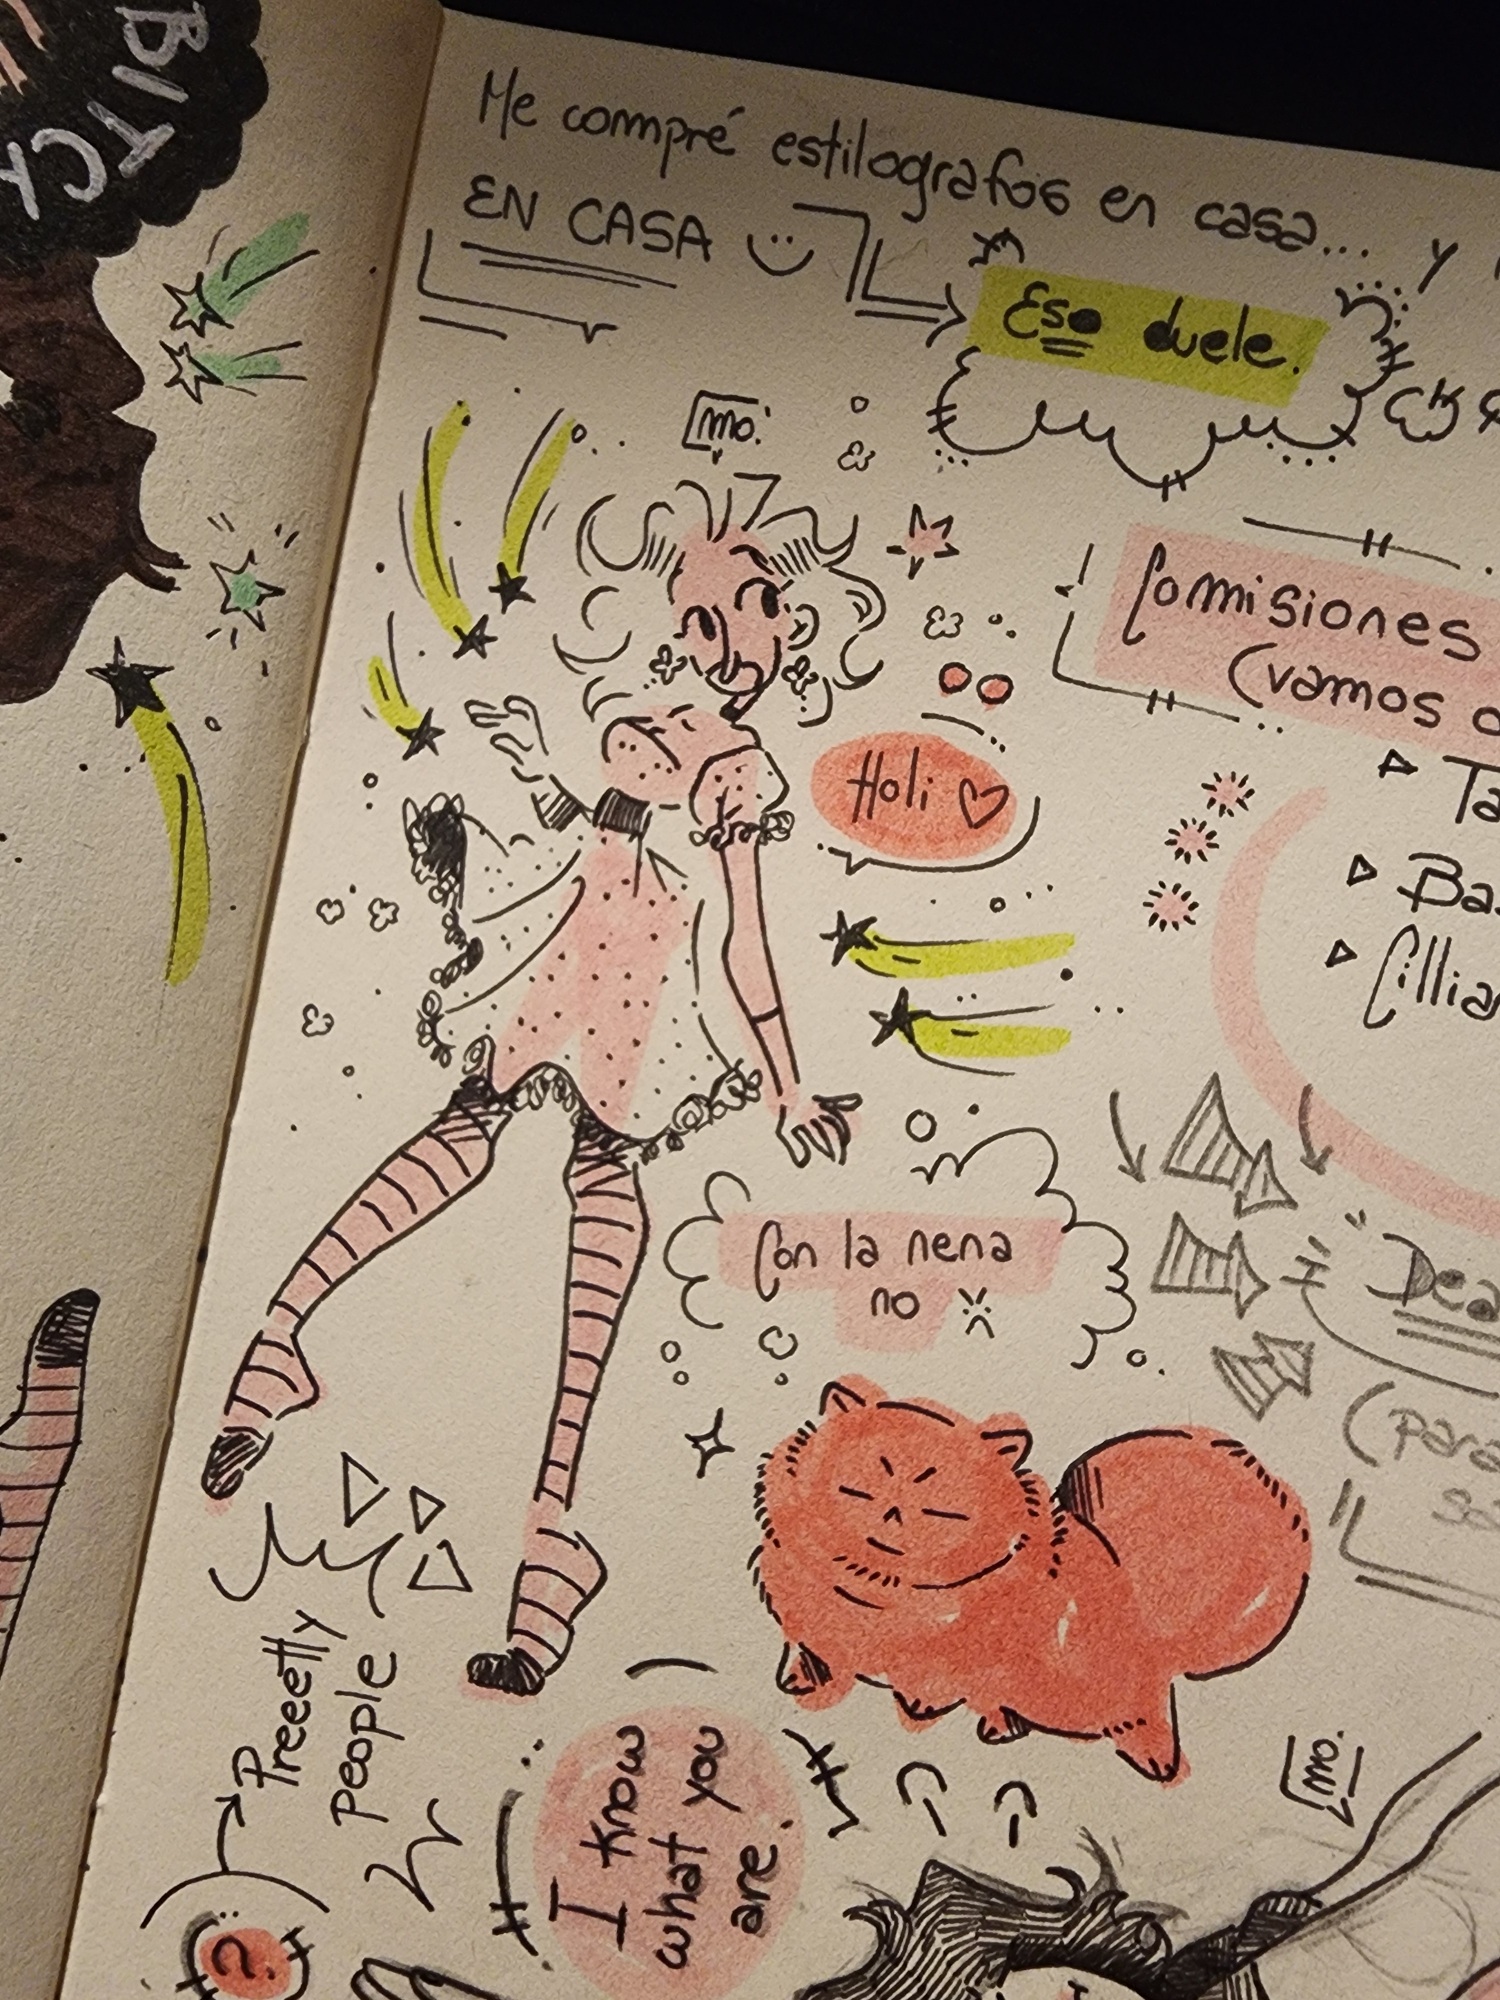 BITCH
Me compré estilografos en casa... y
EN CASA
Eso duele.
mo.
Comisiones
(vamos
Holi
Con la nena
no
Preeetty
people
I know
what you
are.
mo.
?